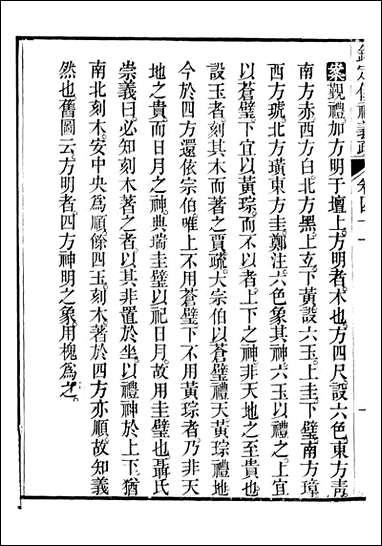 欽定儀禮義疏 卷四十一
案覲禮加方明于壇上方明者木也方四尺設六色東方青
南方赤西方白北方黑上玄下黃設六玉上圭下璧南方璋
西方琥北方璜東方圭鄭注六色象其神六玉以禮之上宜
以蒼璧下宜以黃琮而不以者上下之神非天地之至貴也
設玉者刻其木而著之賈疏大宗伯以蒼璧禮天黃琮禮地
今於四方還依宗伯唯上不用蒼璧下不用黃琮者乃非天
地之貴而日月之神典瑞圭璧以祀日月故用圭璧也聶氏
崇義曰必知刻木著之者以其非置於坐以禮神於上下猶
南北刻木安中央為順餘四玉刻木著於四方亦順故知義
然也舊圖云方明者四方神明之象用槐為之